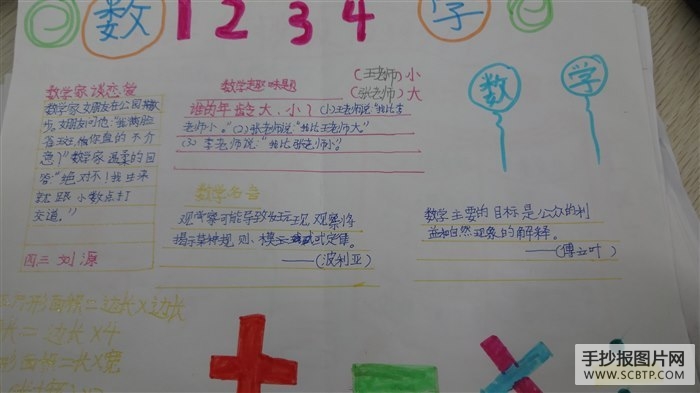 数 1 2 3 4 学
数学家谈恋爱
数学家女朋友在公园散
步。女朋友问他:"我满脸
雀斑,你真的不介
意?"数学家温柔的回
答:"绝对不!我生来
就跟小数点打
交道。"
四三 刘源
数学趣味题
(王老师)小
(张老师)大
谁的年龄大、小?(1)王老师说:"我比李
老师小。"(2)张老师说:"我比王老师大。"
(3)李老师说:"我比张老师小。"
数 学
数学名言
观察可能导致发现,观察将
揭示某种规则、模式或定律。
——(波利亚)
数学主要的目标是公众的利
益和自然现象的解释。
——(傅立叶)
方形面积=边长×边长
长=边长×4
形面积=长×宽
手抄报图片网
WWW.SCBTP.COM